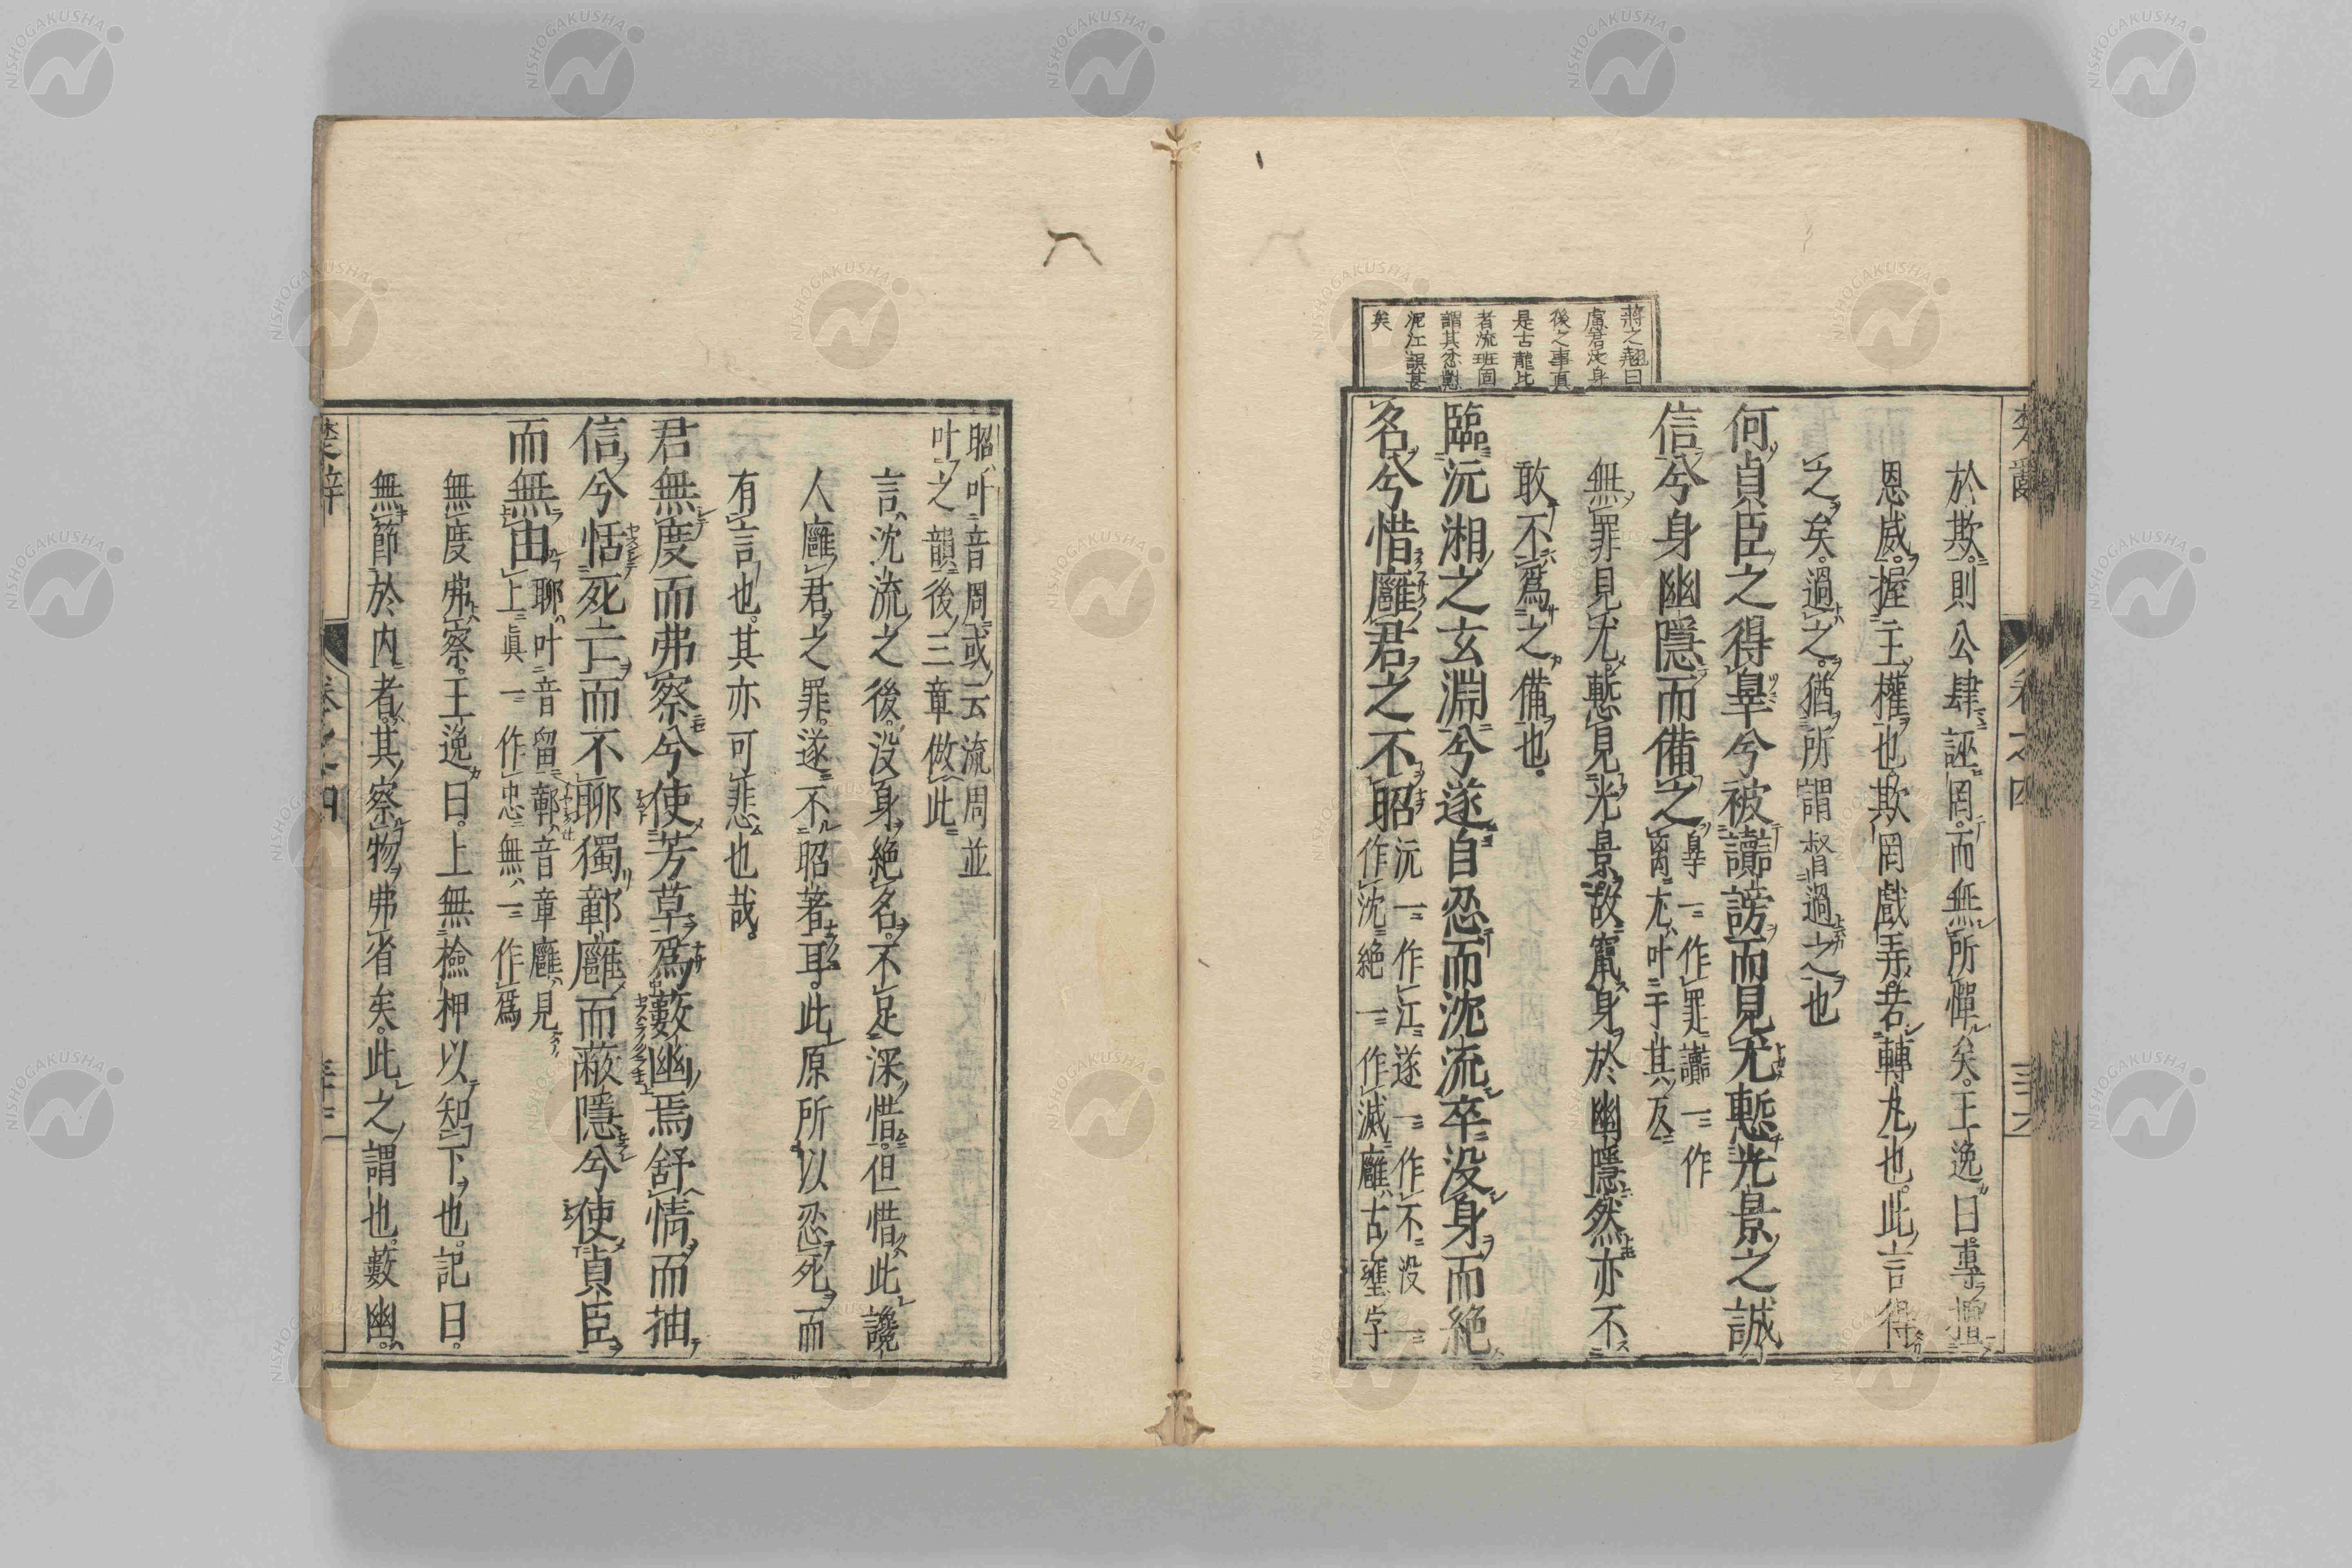 楚辭
卷之四
於欺。則公肆誣罔。而無所憚矣。王逸曰。專擅
恩威。握主權也。欺罔戲弄。若轉丸也。此言得
之矣。過之。猶所謂督過之也
何貞臣之得辠兮被讟謗而見尤慙光景之誠
信兮身幽隱而備之辠一作罪讟一作
离尤叶于其反
無罪見尤。慙見光景。故竄身於幽隱。然亦不
敢不爲之備也。
臨沅湘之玄淵兮遂自忍而沈流卒沒身而絶
名兮惜廱君之不昭沅一作江遂一作不沒一
作沈絶一作滅廱古壅字
蔣之翹曰
慮害沒身
後之事真
是古龍比
者流班固
謂其忿懟
沉江誤甚
矣
昭叶音周或云流周並
叶之韻後三章倣此
言沈流之後。沒身絶名。不足深惜。但惜此讒
人廱君之罪。遂不昭著耳。此原所以忍死而
有言也。其亦可悲也哉。
君無度而弗察兮使芳草爲藪幽焉舒情而抽
信兮恬死亡而不聊獨鄣廱而蔽隱兮使貞臣
而無由聊叶音留鄣音章廱見
上貞一作忠無一作爲
無度弗察。王逸曰。上無檢柙以知下也。記曰。
無節於内者。其察物弗省矣。此之謂也。藪幽。
楚辭
卷之四
NISHOGAKUSHA